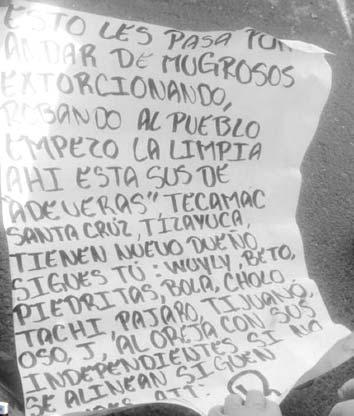 ESTO LES PASA POR
ANDAR DE MUGROSOS
EXTORCIONANDO,
ROBANDO AL PUEBLO
EMPEZO LA LIMPIA
AHI ESTA SUS DE
"ADEVERAS" TECAMAC
SANTA CRUZ, TIZAYUCA,
TIENEN NUEVO DUEÑO
SIGUES TÚ: WUYLY, BETO,
PIEDRITAS, BOLA, CHOLO
TACHI PAJARO, TIJUANO,
OSO, J, "AL OREJA CON SUS
INDEPENDIENTES SI NO
SE ALINEAN SIGUEN
ATT: